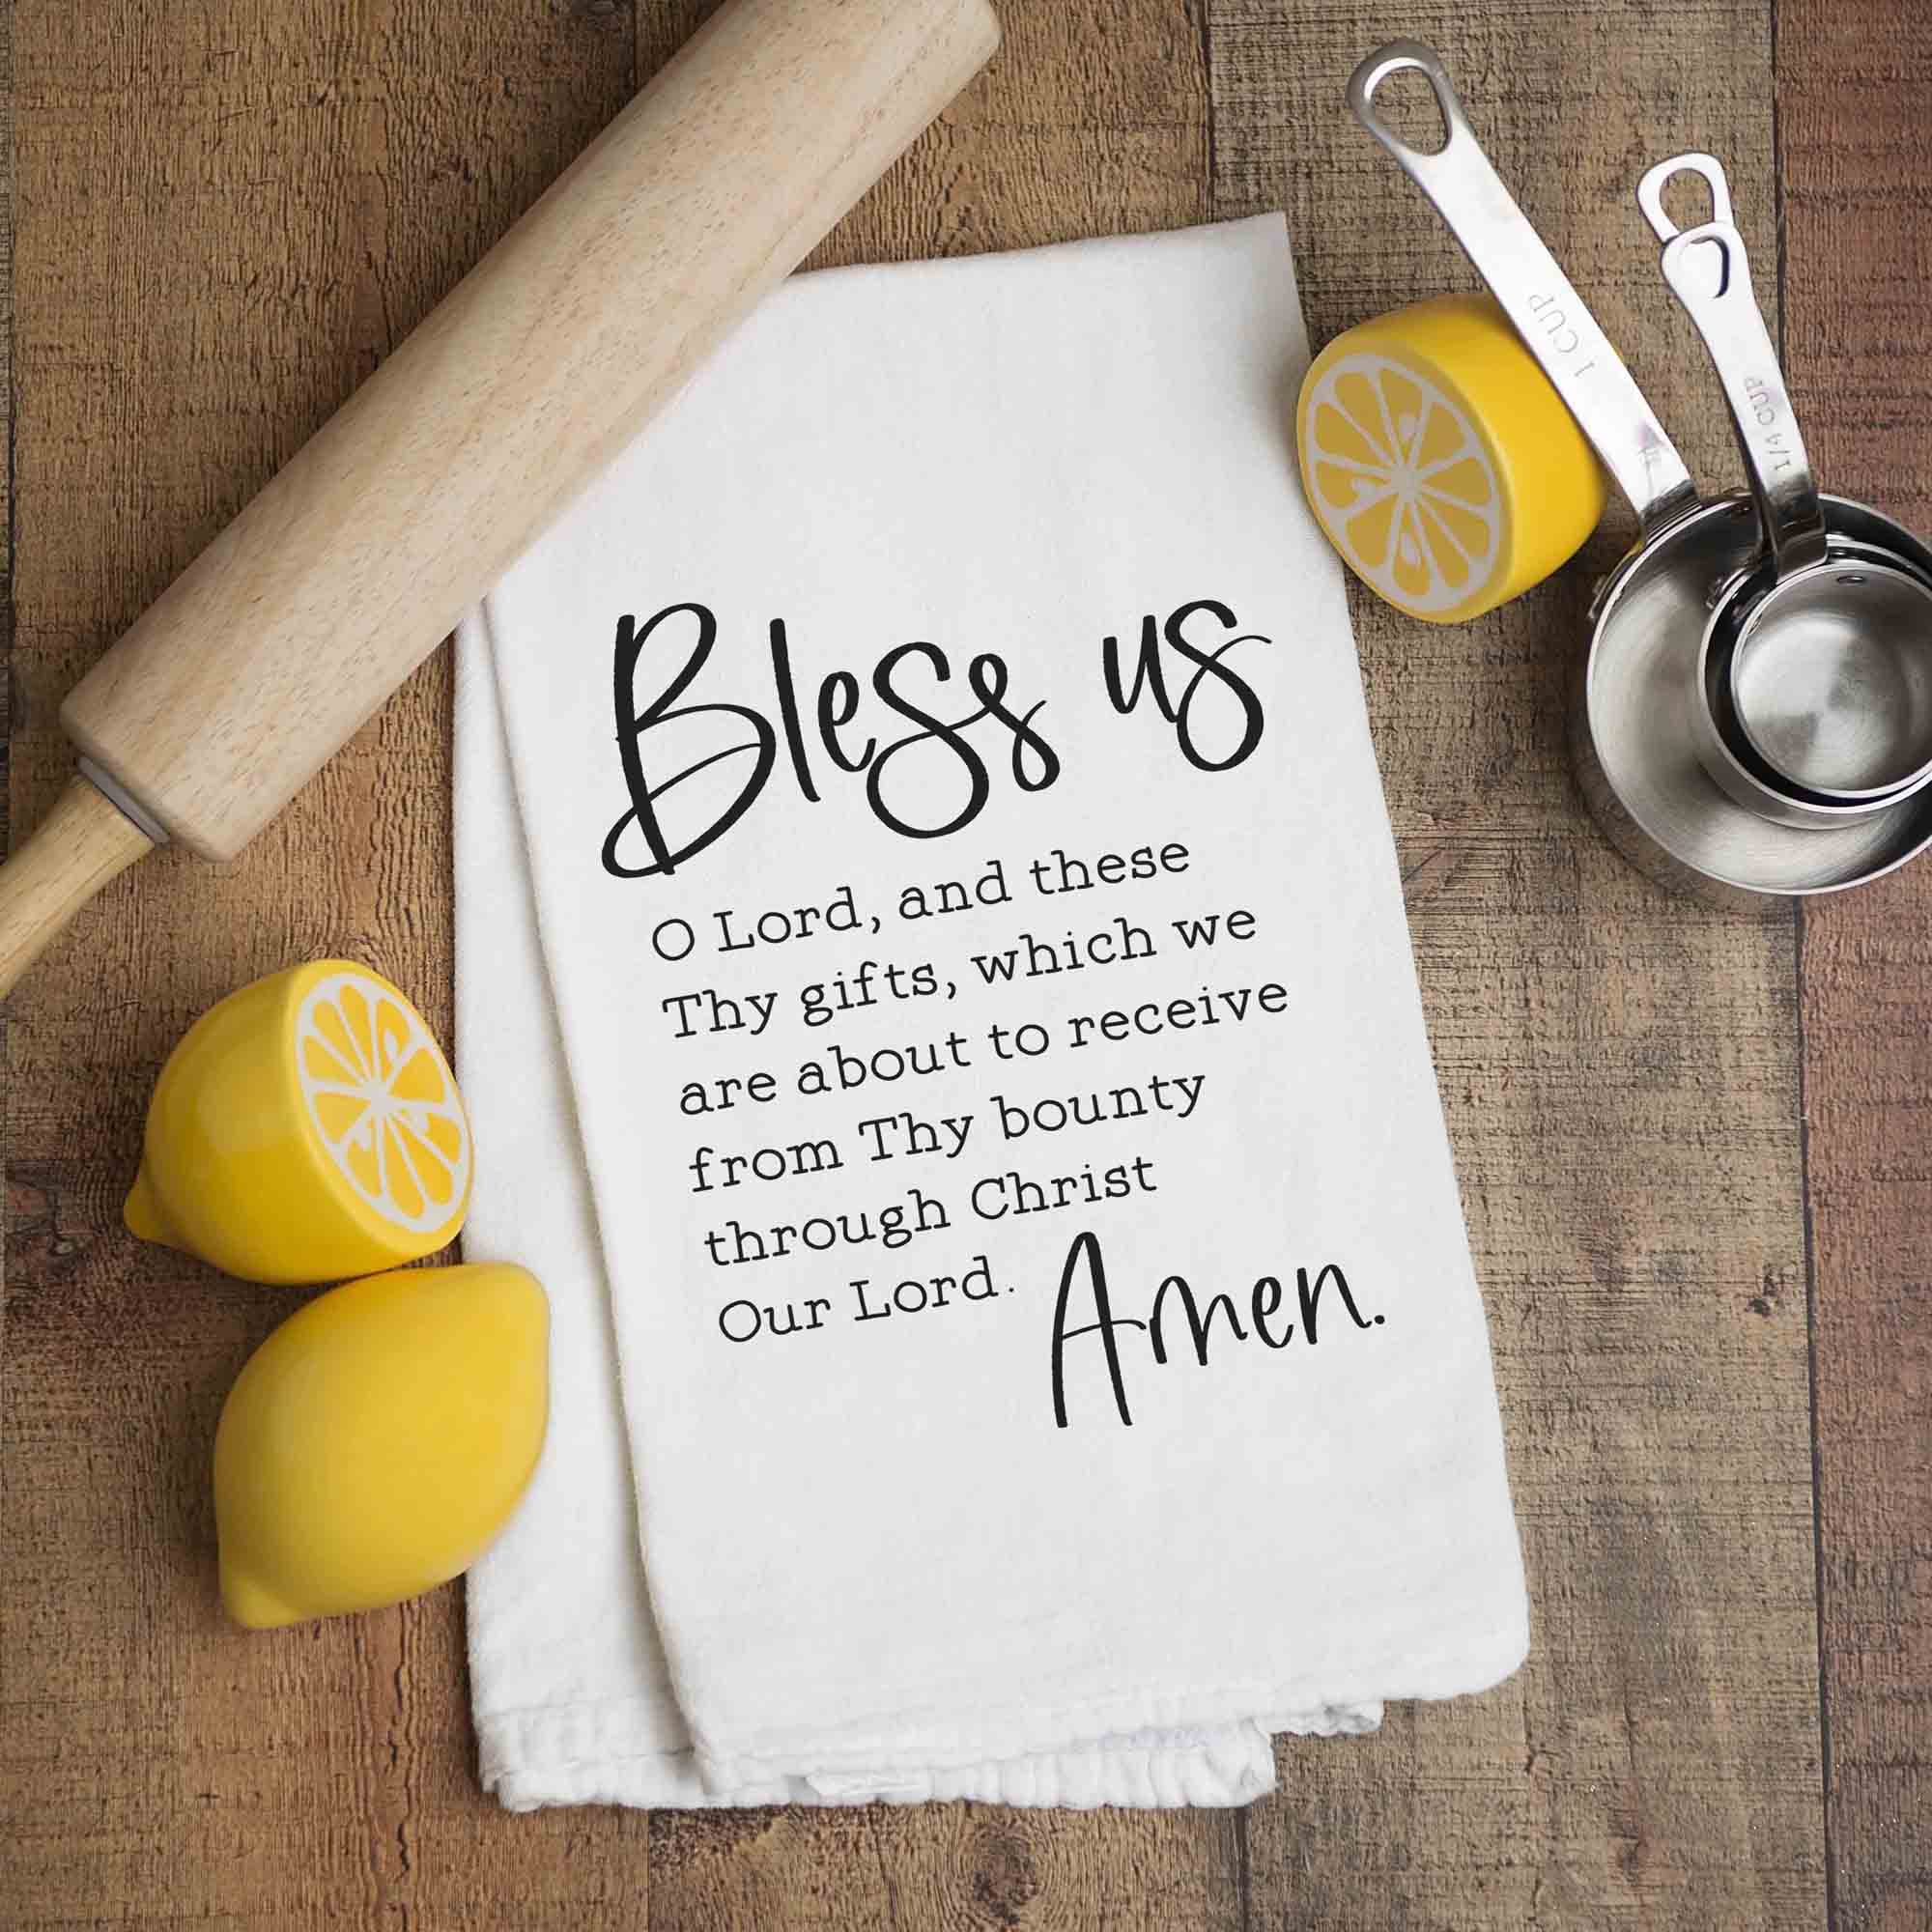 Bless us
O Lord, and these
Thy gifts, which we
are about to receive
from Thy bounty
through Christ
Our Lord. Amen.
1 CUP
1/4 CUP